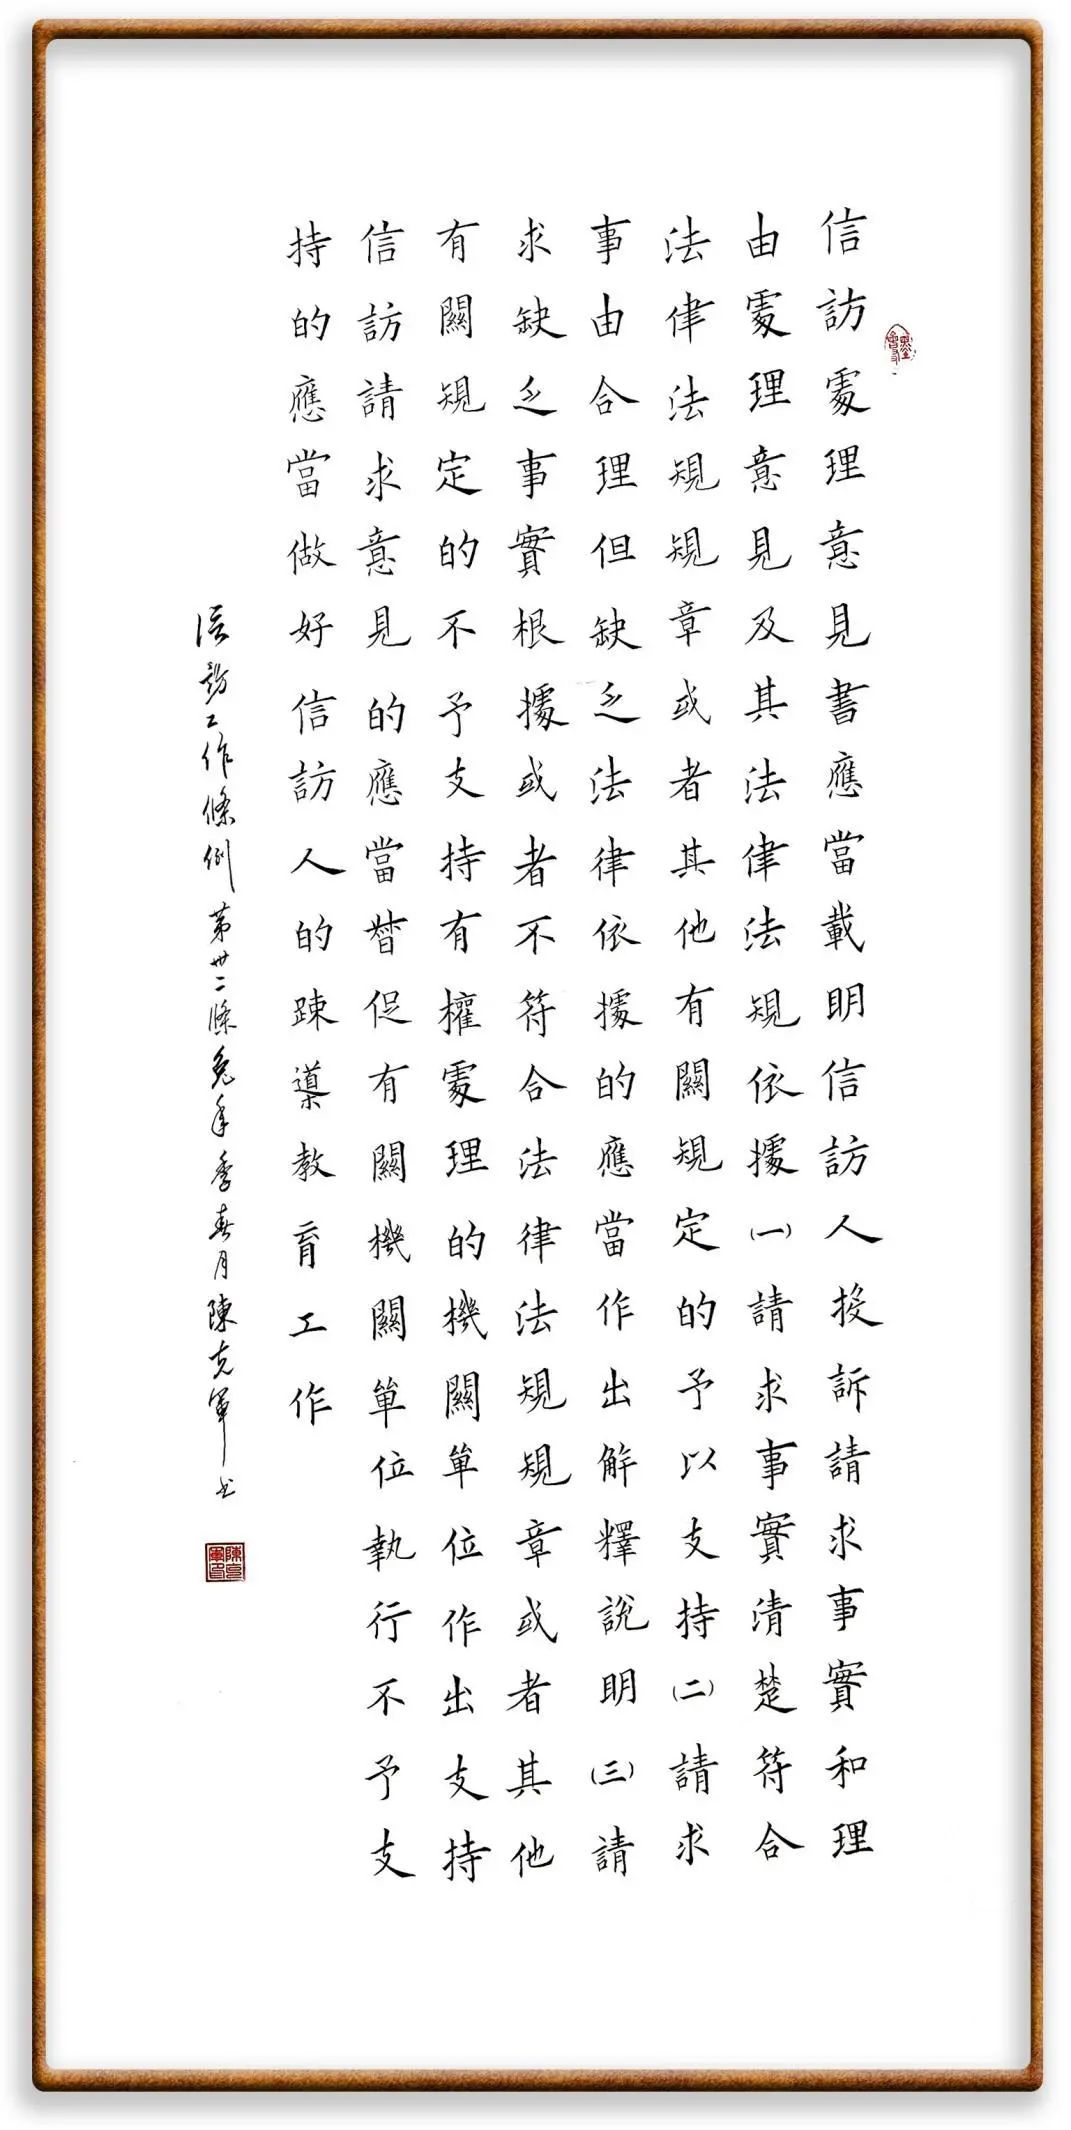 信訪處理意見書應當載明信訪人投訴請求事實和理
由處理意見及其法律法規依據(一)請求事實清楚符合
法律法規規章或者其他有關規定的予以支持(二)請求
事由合理但缺乏法律依據的應當作出解釋說明(三)請
求缺乏事實根據或者不符合法律法規規章或者其他
有關規定的不予支持有權處理的機關單位作出支持
信訪請求意見的應當督促有關機關單位執行不予支
持的應當做好信訪人的疎導教育工作
信訪工作條例第卅二條兔年季春月陳克軍书